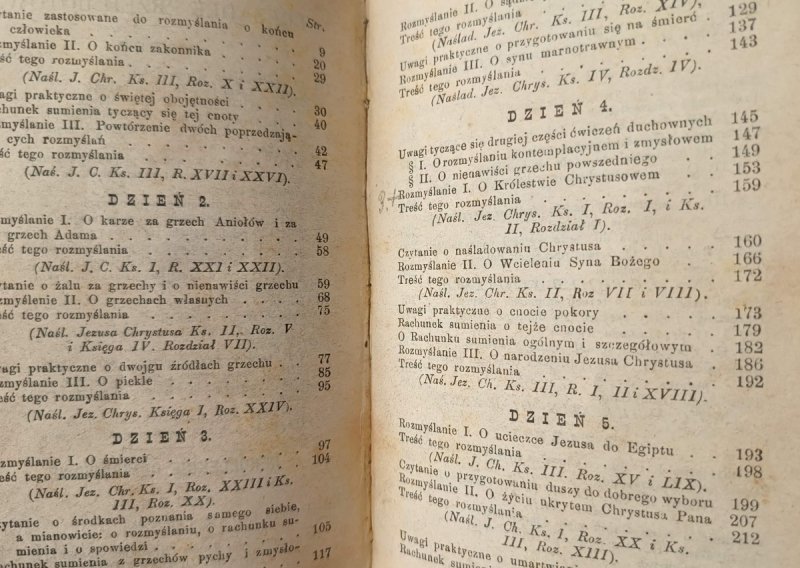 Str.
zytanie zastosowane do rozmyślania o końcu
człowieka . . . . . . . . 9
zmyślanie II. O końcu zakonnika . . . 20
eść tego rozmyślania . . . . . . . 29
(Naśl. J. Chr. Ks. III, Roz. X i XXII).
agi praktyczne o świętej obojętności . . . 30
achunek sumienia tyczący się tej cnoty . . 40
zmyślanie III. Powtórzenie dwóch poprzedzają-
cych rozmyślań . . . . . . 42
eść tego rozmyślania . . . . . . . 47
(Naś. J. C. Ks. III, R. XVII i XXVI).
DZIEŃ 2.
zmyślanie I. O karze za grzech Aniołów i za
grzech Adama . . . . . . . 49
eść tego rozmyślania . . . . . . . 58
(Naśl. J. C. Ks. I, R. XXI i XXII).
ytanie o żalu za grzechy i o nienawiści grzechu 59
zmyślenie II. O grzechach własnych . . . 68
eść tego rozmyślania . . . . . . . 75
(Naśl. Jezusa Chrystusa Ks. II, Roz. V
i Księga IV. Rozdział VII).
wagi praktyczne o dwojgu źródłach grzechu . 77
zmyślanie III. O piekle . . . . . . 85
eść tego rozmyślania . . . . . . . 95
(Naśl. Jez. Chrys. Księga I, Roz. XXIV).
DZIEŃ 3.
zmyślanie I. O śmierci . . . . . . 97
eść tego rozmyślania . . . . . . . 104
(Naśl. Jez. Chr. Ks. I, Roz. XXIII i Ks.
III, Roz. XX).
zytanie o środkach poznania samego siebie,
a mianowicie: o rozmyślaniu, o rachunku su-
mienia i o spowiedzi . . . . . . 105
achunek sumienia z grzechów pychy i zmysło- 117
Rozmyślanie II. O
Treść tego rozmyślania . . . . . . 129
(Naślad. Jez. Chr. Ks. III, Roz. XIV),
Uwagi praktyczne o przygotowaniu się na śmierć . 137
Rozmyślanie III. O synu marnotrawnym . . 143
Treść tego rozmyślania
(Naślad. Jez. Chrys. Ks. IV, Rozdz. IV).
DZIEŃ 4.
Uwagi tyczące się drugiej części ćwiczeń duchownych 145
§ I. O rozmyślaniu kontemplacyjnem i zmysłowem 147
§ II. O nienawiści grzechu powszedniego . . 149
Rozmyślanie I. O Królestwie Chrystusowem . . 153
Treść tego rozmyślania . . . . . . 159
(Naśl. Jez. Chrys. Ks. I, Roz. I, i Ks.
II, Rozdział I).
Czytanie o naśladowaniu Chrystusa . . . . 160
Rozmyślanie II. O Wcieleniu Syna Bożego . . 166
Treść tego rozmyślania . . . . . . 172
(Naśl. Jez. Chr. Ks. II, Roz VII i VIII).
Uwagi praktyczne o cnocie pokory . . . . 173
Rachunek sumienia o tejże cnocie . . . . 179
O Rachunku sumienia ogólnym i szczegółowym . 182
Rozmyślanie III. O narodzeniu Jezusa Chrystusa . 186
Treść tego rozmyślania . . . . . . 192
(Naś. Jez. Ch. Ks. III, R. I, II i XVIII).
DZIEŃ 5.
Rozmyślanie I. O ucieczce Jezusa do Egiptu . . 193
Treść tego rozmyślania . . . . . . 198
(Naśl. J. Ch. Ks. III. Roz. XV i LIX).
Czytanie o przygotowaniu duszy do dobrego wyboru 199
Rozmyślanie II. O życiu ukrytem Chrystusa Pana 207
Treść tego rozmyślania . . . . . . 212
(Naśl. J. Ch. Ks. I, Roz. XX i Ks.
III, Roz. XIII).
Uwagi praktyczne o
Rachunek sumienia